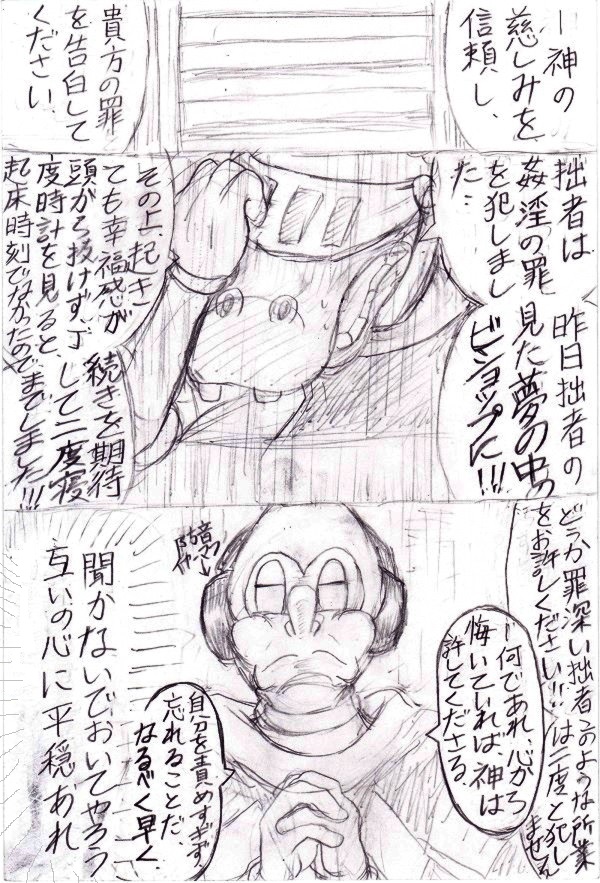 ―神の
慈しみを
信頼し、
貴方の罪
を告白して
ください、
拙者は
姦淫の罪
を犯しまし
た…
昨日拙者の
見た夢の中の
ビショップに!!!
その上、起き
ても幸福感が
頭から抜けず、
続きを期待
して二度寝
度時計を見ると、
起床時刻でなかったのでまでしました!!!
どうか罪深い拙者
をお許しください!!
このような所業
は二度と犯し
ません
―何であれ、心から
悔いていれば、神は
許してくださる、
自分を責めすぎず
忘れることだ、
なるべく早く、
聞かないでおいてやろう
互いの心に平穏あれ